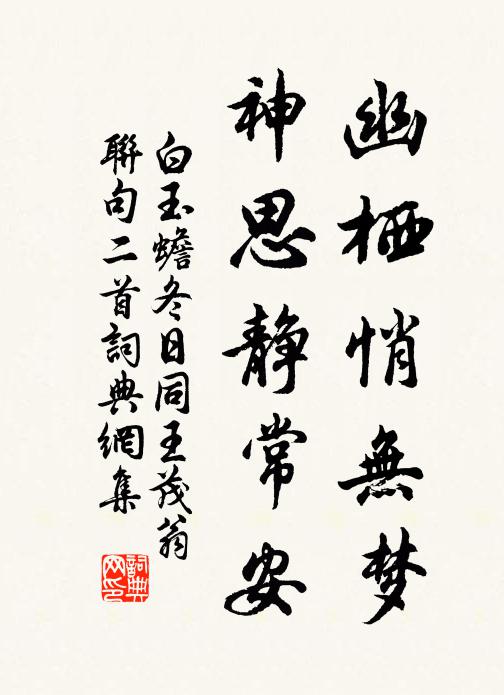 幽栖悄無梦
神思静常安
白玉蟾冬日同王茂翁
聯句二首詞典網集
詞典网印